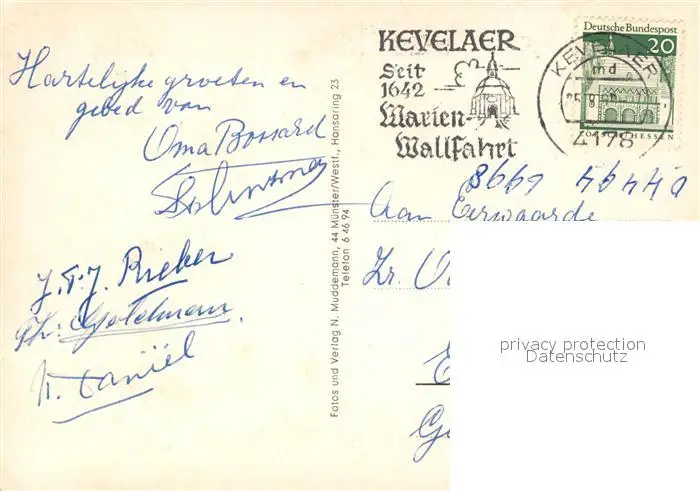 Hartelijke groeten en
gebed van
Oma Bossard
J.T.J. Rieken
Th: Gotelman
K. Daniël
Fotos und Verlag N. Muddemann, 44 Münster/Westf., Hansaring 23
Telefon 6 46 94
KEVELAER
Seit
1642
Marien-
Wallfahrt
Deutsche Bundespost
20
LORSCH/HESSEN
KEVELAER
md
4178
Aan Eerwaarde
Zr.
privacy protection
Datenschutz